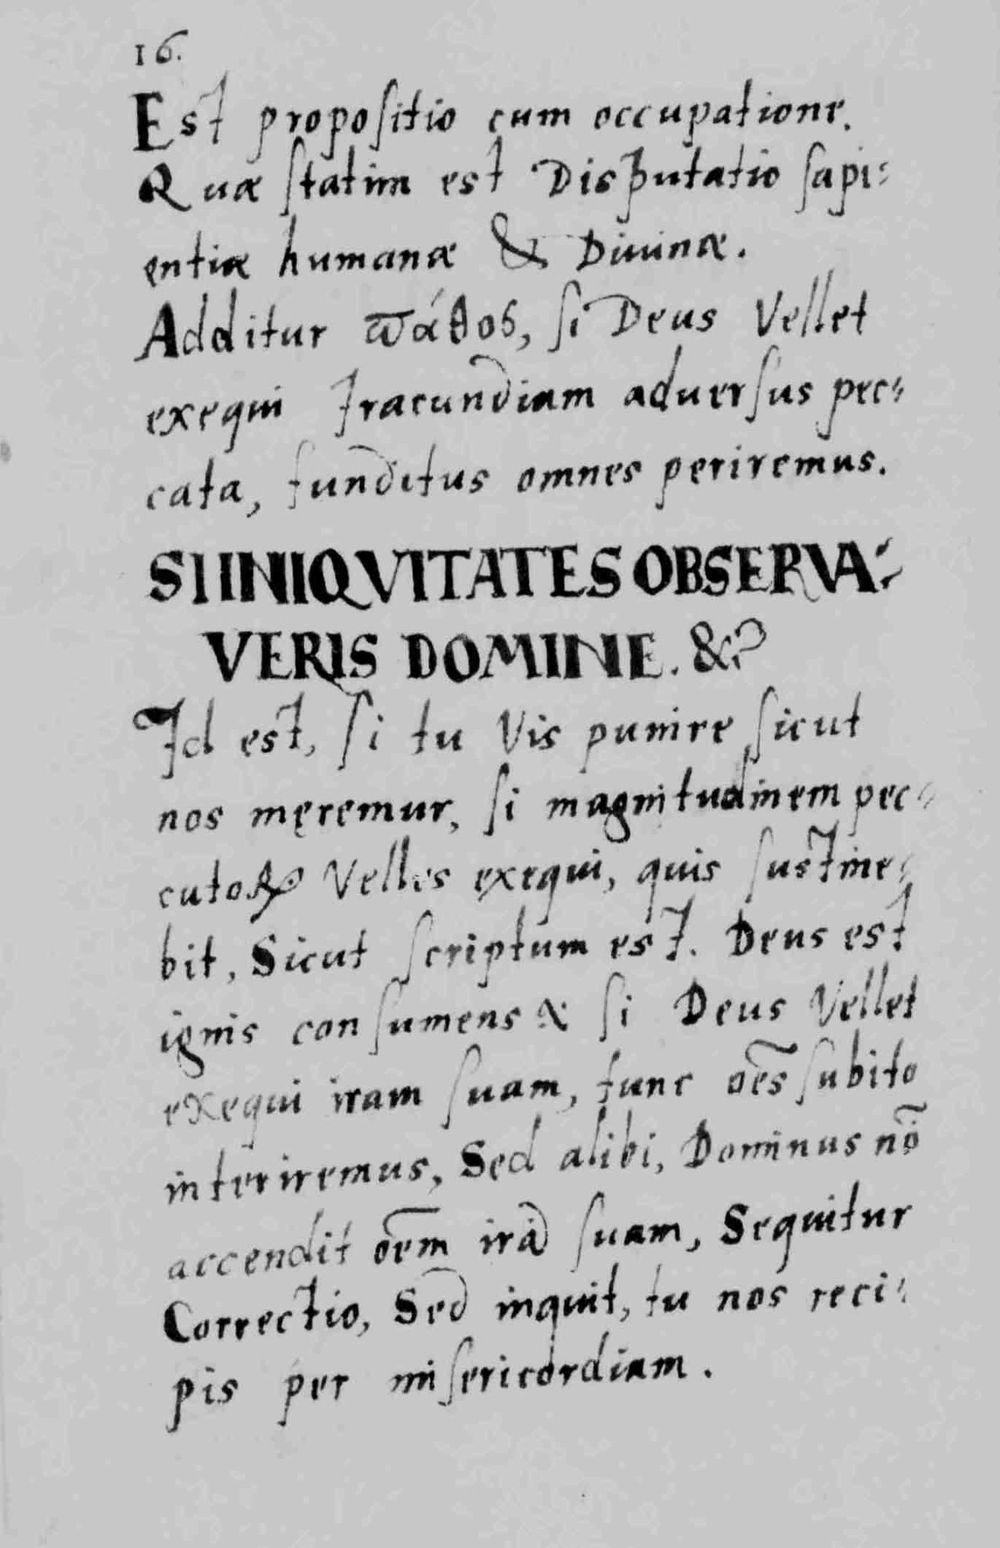 16.
Est propositio cum occupatione.
Quæ statim est Disputatio sapi-
entiæ humanæ & Diuinæ.
Additur ϖάθος, si Deus Vellet
exequi Iracundiam aduersus pec-
cata, funditus omnes periremus.
SI INIQVITATES OBSERVA-
VERIS DOMINE. &c
Id est, si tu Vis punire sicut
nos męremur, si magnitudinem pec-
cutoꝝ Velles exequi, quis sustine-
bit, Sicut scriptum est. Deus est
ignis consumens & si Deus Vellet
exequi iram suam, tunc oēs subito
interiremus, Sed alibi, Dominus nō
accendit oēm irā suam, Sequitur
Correctio, Sed inquit, tu nos reci-
pis per misericordiam.